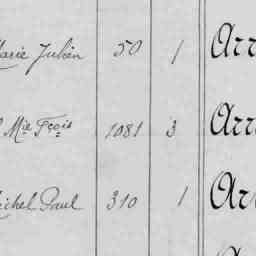 Marie Julien 50 1 Arr
Mie Fçois 1081 3 Arr
Michel Paul 310 1 Arr